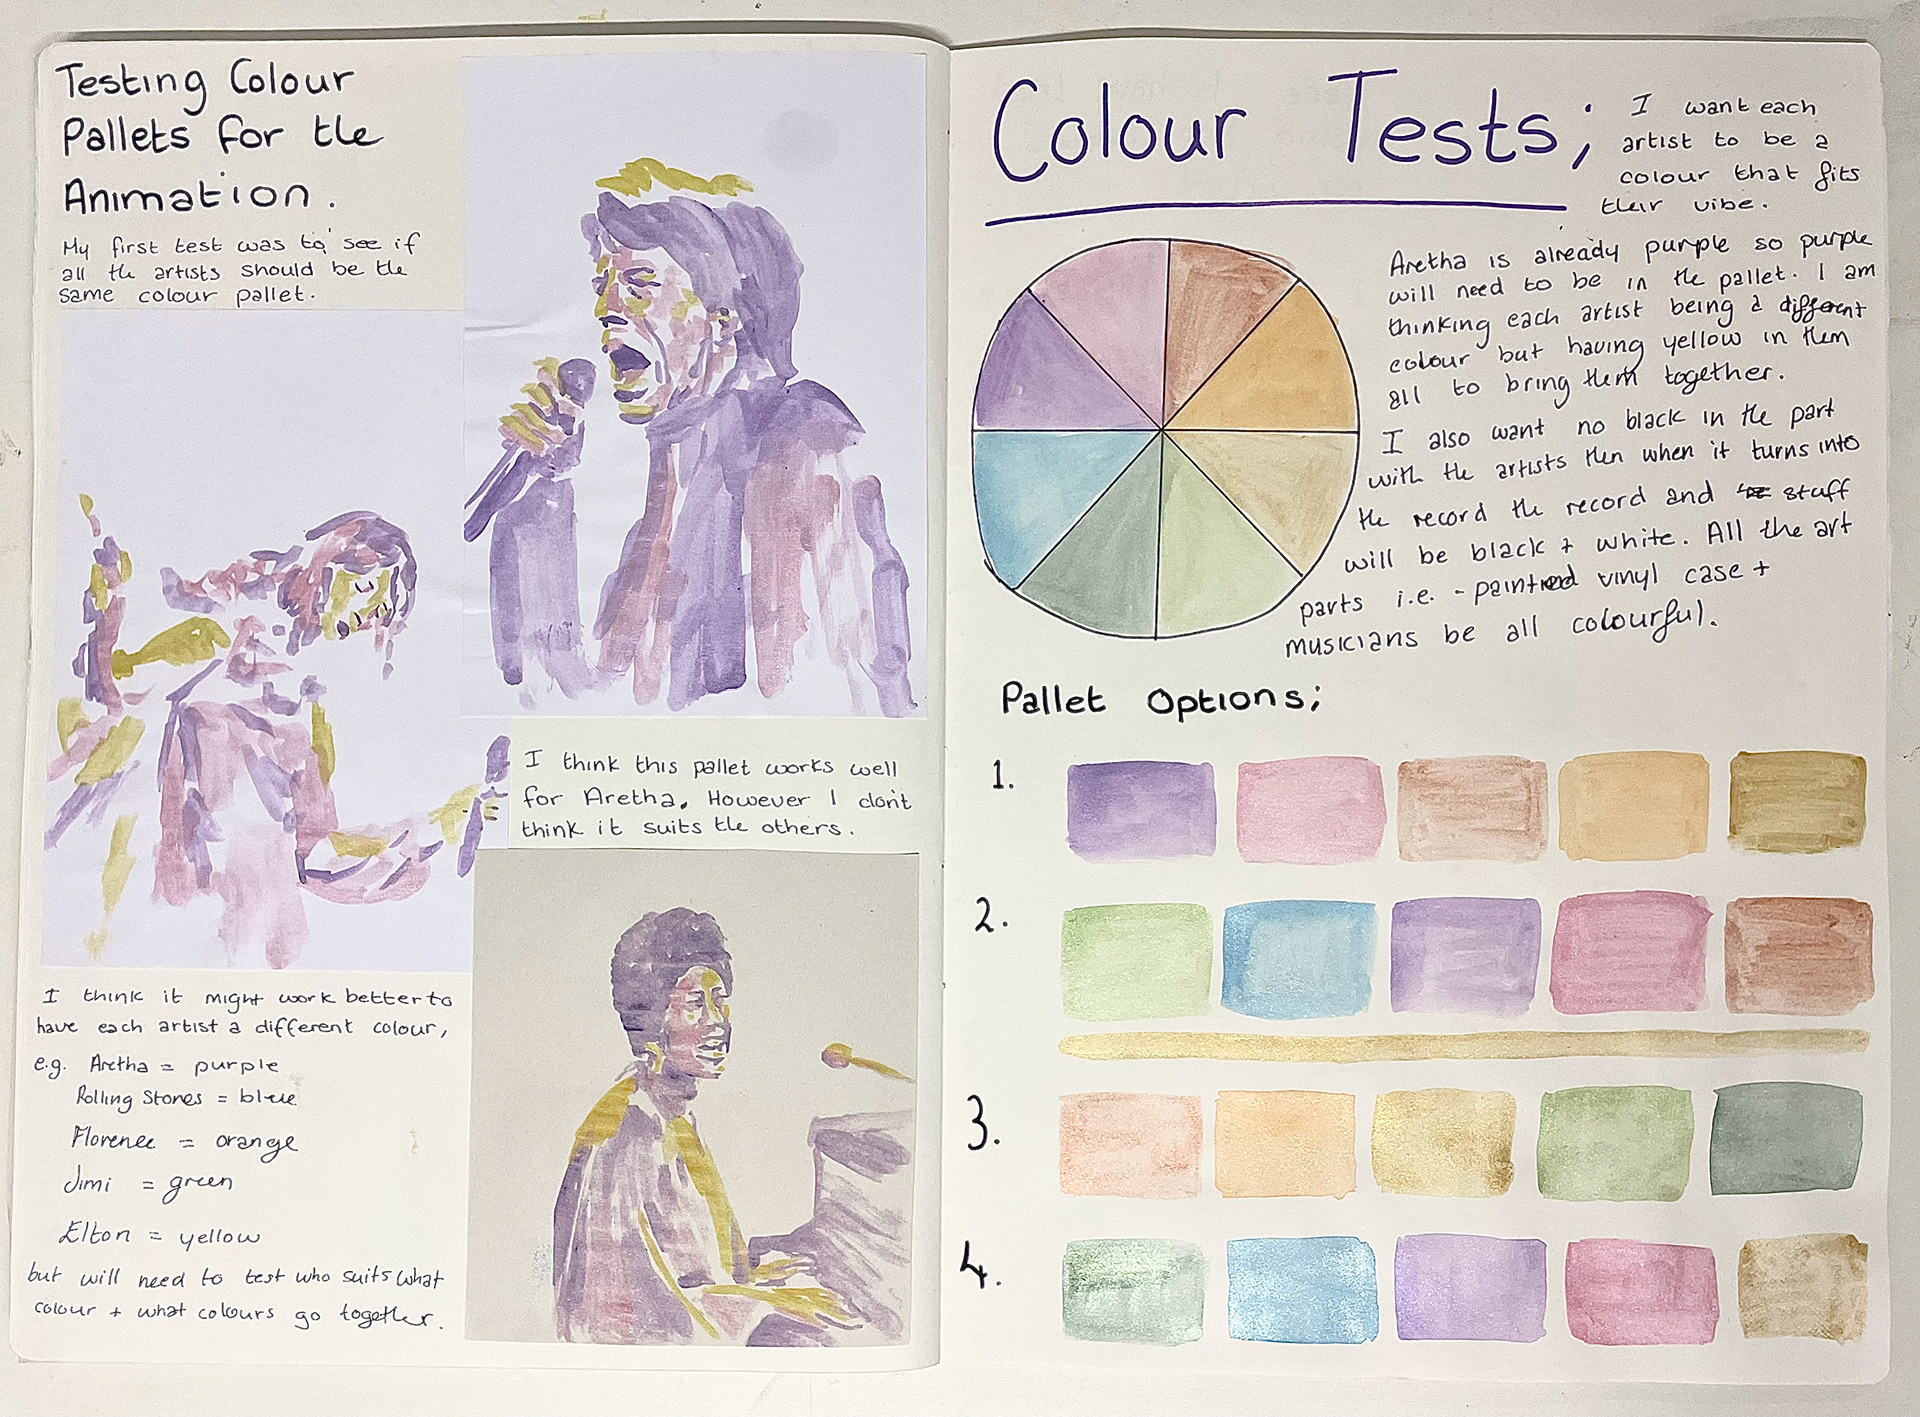 Testing Colour
Pallets for the
Animation.
My first test was to see if
all the artists should be the
same colour pallet.
I think this pallet works well
for Aretha. However I don't
think it suits the others.
I think it might work better to
have each artist a different colour,
e.g. Aretha = purple
Rolling Stones = blue
Florence = orange
Jimi = green
Elton = yellow
but will need to test who suits what
colour + what colours go together.
Colour Tests;
I want each
artist to be a
colour that fits
their vibe.
Aretha is already purple so purple
will need to be in the pallet. I am
thinking each artist being a different
colour but having yellow in them
all to bring them together.
I also want no black in the part
with the artists then when it turns into
the record the record and stuff
will be black + white. All the art
parts i.e. - painted vinyl case +
musicians be all colourful.
Pallet Options;
1.
2.
3.
4.